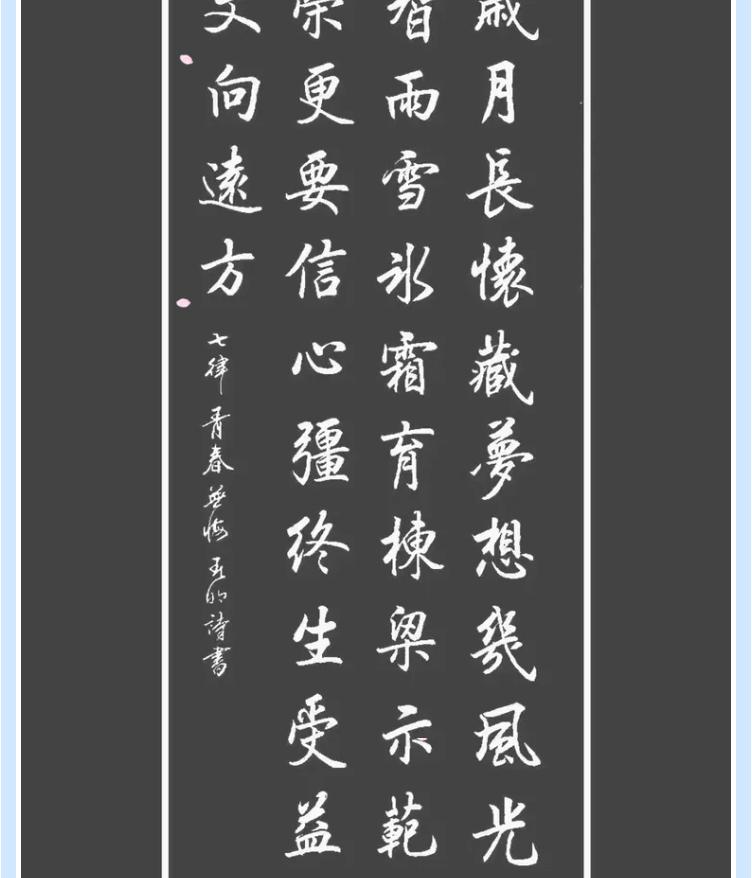 歲月長懷藏夢想幾風光
智雨雪氷霜育棟梁示範
榮更要信心彊終生受益
文向遠方
七律 青春無悔 吾的詩書